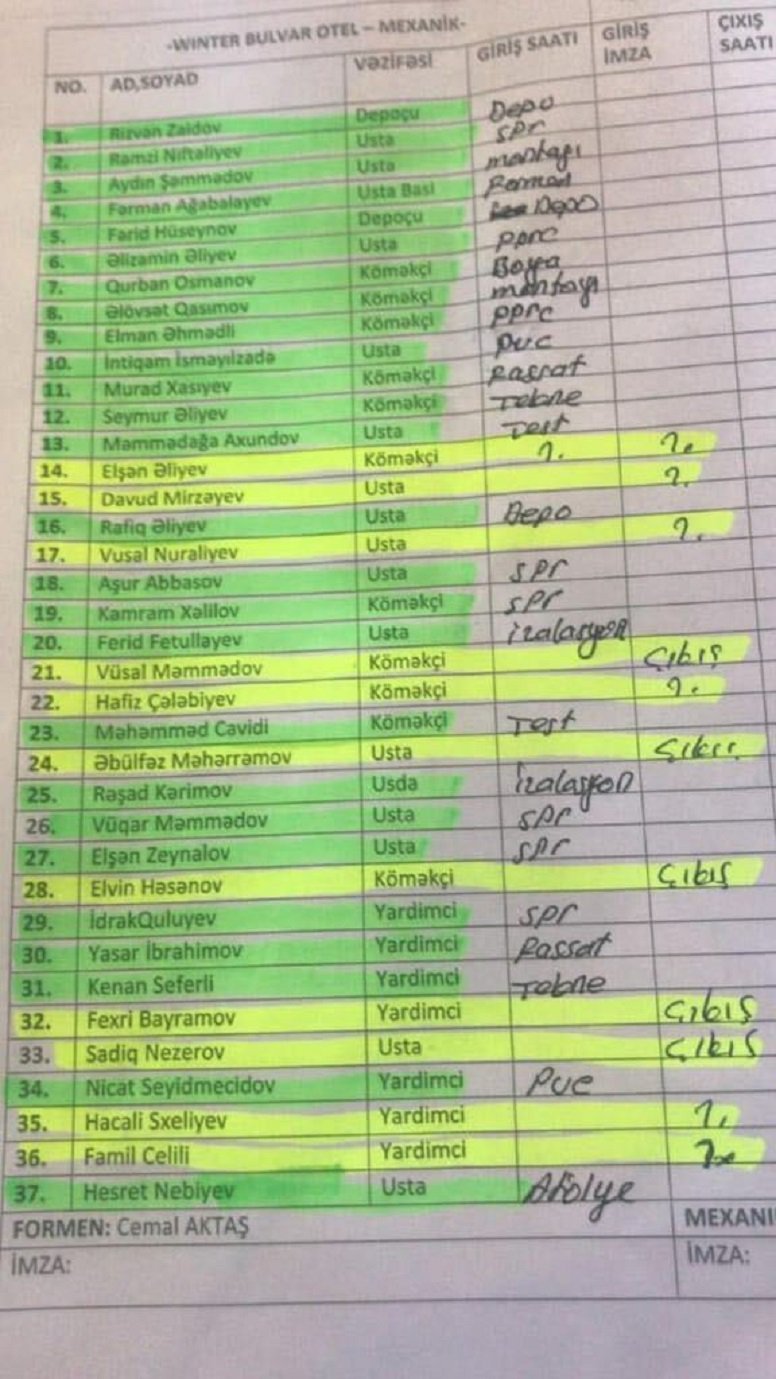 -WINTER BULVAR OTEL – MEXANİK-
NO. AD,SOYAD VƏZİFƏSİ GİRİŞ SAATI GİRİŞ İMZA ÇIXIŞ SAATI
1. Rizvan Zaidov Depoçu Depo
2. Ramzi Niftaliyev Usta SPr
3. Aydın Şəmmədov Usta montajı
4. Fərman Ağabalayev Usta Basi
5. Fərid Hüseynov Depoçu Depo
6. Əlizamin Əliyev Usta PPrc
7. Qurban Osmanov Köməkçi Boya
8. Əlövsət Qasımov Köməkçi montajı
9. Elman Əhmədli Köməkçi PPrc
10. İntiqam İsmayılzadə Usta Pvc
11. Murad Xasıyev Köməkçi Passat
12. Seymur Əliyev Köməkçi Tebne
13. Məmmədağa Axundov Usta Test
14. Elşən Əliyev Köməkçi ?. ?.
15. Davud Mirzəyev Usta ?.
16. Rafiq Əliyev Usta Depo
17. Vusal Nuraliyev Usta ?.
18. Aşur Abbasov Usta SPr
19. Kamram Xəlilov Köməkçi SPr
20. Ferid Fetullayev Usta izalasyon
21. Vüsal Məmmədov Köməkçi Çıkış
22. Hafiz Çələbiyev Köməkçi ?.
23. Məhəmməd Cavidi Köməkçi Test
24. Əbülfəz Məhərrəmov Usta Çıkış
25. Rəşad Kərimov Usda İzalasyon
26. Vüqar Məmmədov Usta SPr
27. Elşən Zeynalov Usta SPr
28. Elvin Həsənov Köməkçi Çıkış
29. İdrakQuluyev Yardimci SPr
30. Yasar İbrahimov Yardimci Passat
31. Kenan Seferli Yardimci Tebne
32. Fexri Bayramov Yardimci Çıkış
33. Sadiq Nezerov Usta Çıkış
34. Nicat Seyidmecidov Yardimci Pvc
35. Hacali Sxeliyev Yardimci ?.
36. Famil Celili Yardimci ?.
37. Hesret Nebiyev Usta Atolye
FORMEN: Cemal AKTAŞ MEXANI
İMZA: İMZA: